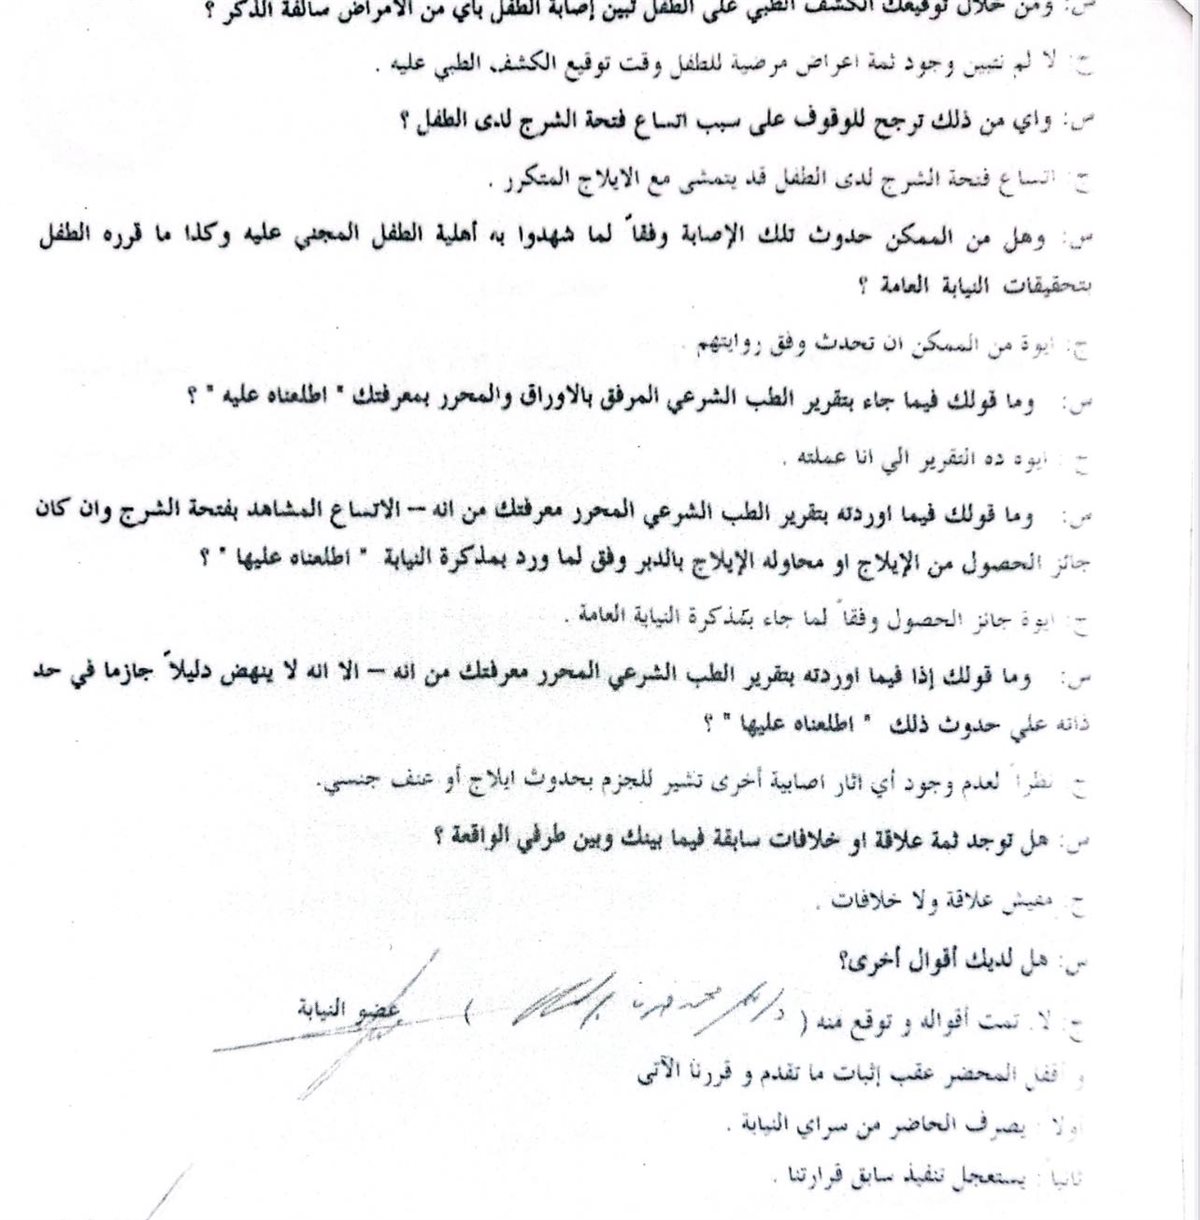 س: ومن خلال توقيعك الكشف الطبي على الطفل تبين إصابة الطفل بأي من الأمراض سالفة الذكر ؟
ج: لا لم نتبين وجود ثمة اعراض مرضية للطفل وقت توقيع الكشف الطبي عليه .
س: واي من ذلك ترجح للوقوف على سبب اتساع فتحة الشرج لدى الطفل ؟
ج: اتساع فتحة الشرج لدى الطفل قد يتمشى مع الايلاج المتكرر .
س: وهل من الممكن حدوث تلك الإصابة وفقاً لما شهدوا به أهلية الطفل المجني عليه وكذا ما قرره الطفل
بتحقيقات النيابة العامة ؟
ج: ايوة من الممكن ان تحدث وفق روايتهم .
س: وما قولك فيما جاء بتقرير الطب الشرعي المرفق بالاوراق والمحرر بمعرفتك " اطلعناه عليه " ؟
ج: ايوه ده التقرير الي انا عملته .
س: وما قولك فيما اوردته بتقرير الطب الشرعي المحرر معرفتك من انه – الاتساع المشاهد بفتحة الشرج وان كان
جائز الحصول من الإيلاج او محاوله الإيلاج بالدبر وفق لما ورد بمذكرة النيابة " اطلعناه عليها " ؟
ج: ايوة جائز الحصول وفقاً لما جاء بمذكرة النيابة العامة .
س: وما قولك إذا فيما اوردته بتقرير الطب الشرعي المحرر معرفتك من انه – الا انه لا ينهض دليلاً جازما في حد
ذاته علي حدوث ذلك " اطلعناه عليها " ؟
ج: نظراً لعدم وجود أي اثار اصابية أخرى تشير للجزم بحدوث ايلاج أو عنف جنسي.
س: هل توجد ثمة علاقة او خلافات سابقة فيما بينك وبين طرفي الواقعة ؟
ج: مفيش علاقة ولا خلافات .
س: هل لديك أقوال أخرى؟
ج: لا. تمت أقواله و توقع منه ( ) عضو النيابة
و أقفل المحضر عقب إثبات ما تقدم و قررنا الآتى
اولا : يصرف الحاضر من سراي النيابة .
ثانيا : يستعجل تنفيذ سابق قرارتنا .